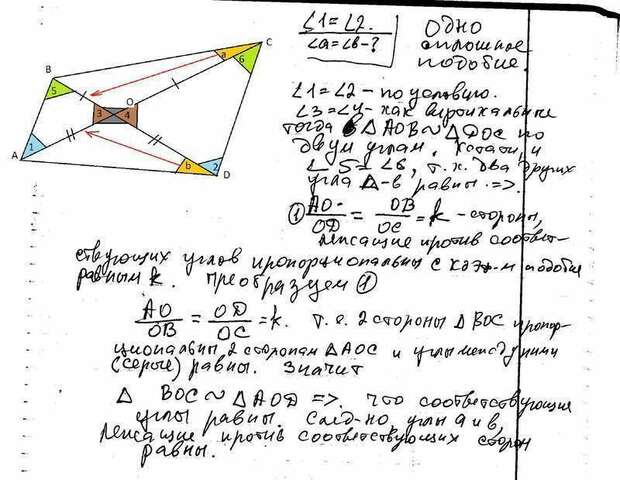 ∠1=∠2.
∠a=∠b-?
Одно
сплошное
подобие.
B
C
A
D
O
a
6
5
3
4
1
b
2
∠1=∠2 - по условию.
∠3=∠4 - как вертикальные
тогда ΔAOB ~ ΔDOC по
двум углам. Кстати, и
∠5=∠6, т.к. два других
угла Δ-в равны. =>.
① AO/OD = OB/OC = k - стороны,
лежащие против соответ-
ствующих углов пропорциональны с коэф-м подобия
равным k. Преобразуем ①
AO/OB = OD/OC = k. т.е. 2 стороны ΔBOC пропор-
циональны 2 сторонам ΔAOC и углы между ними
(серые) равны. Значит
Δ BOC ~ ΔAOD => что соответствующие
углы равны. След-но, углы a и b,
лежащие против соответствующих сторон
равны.